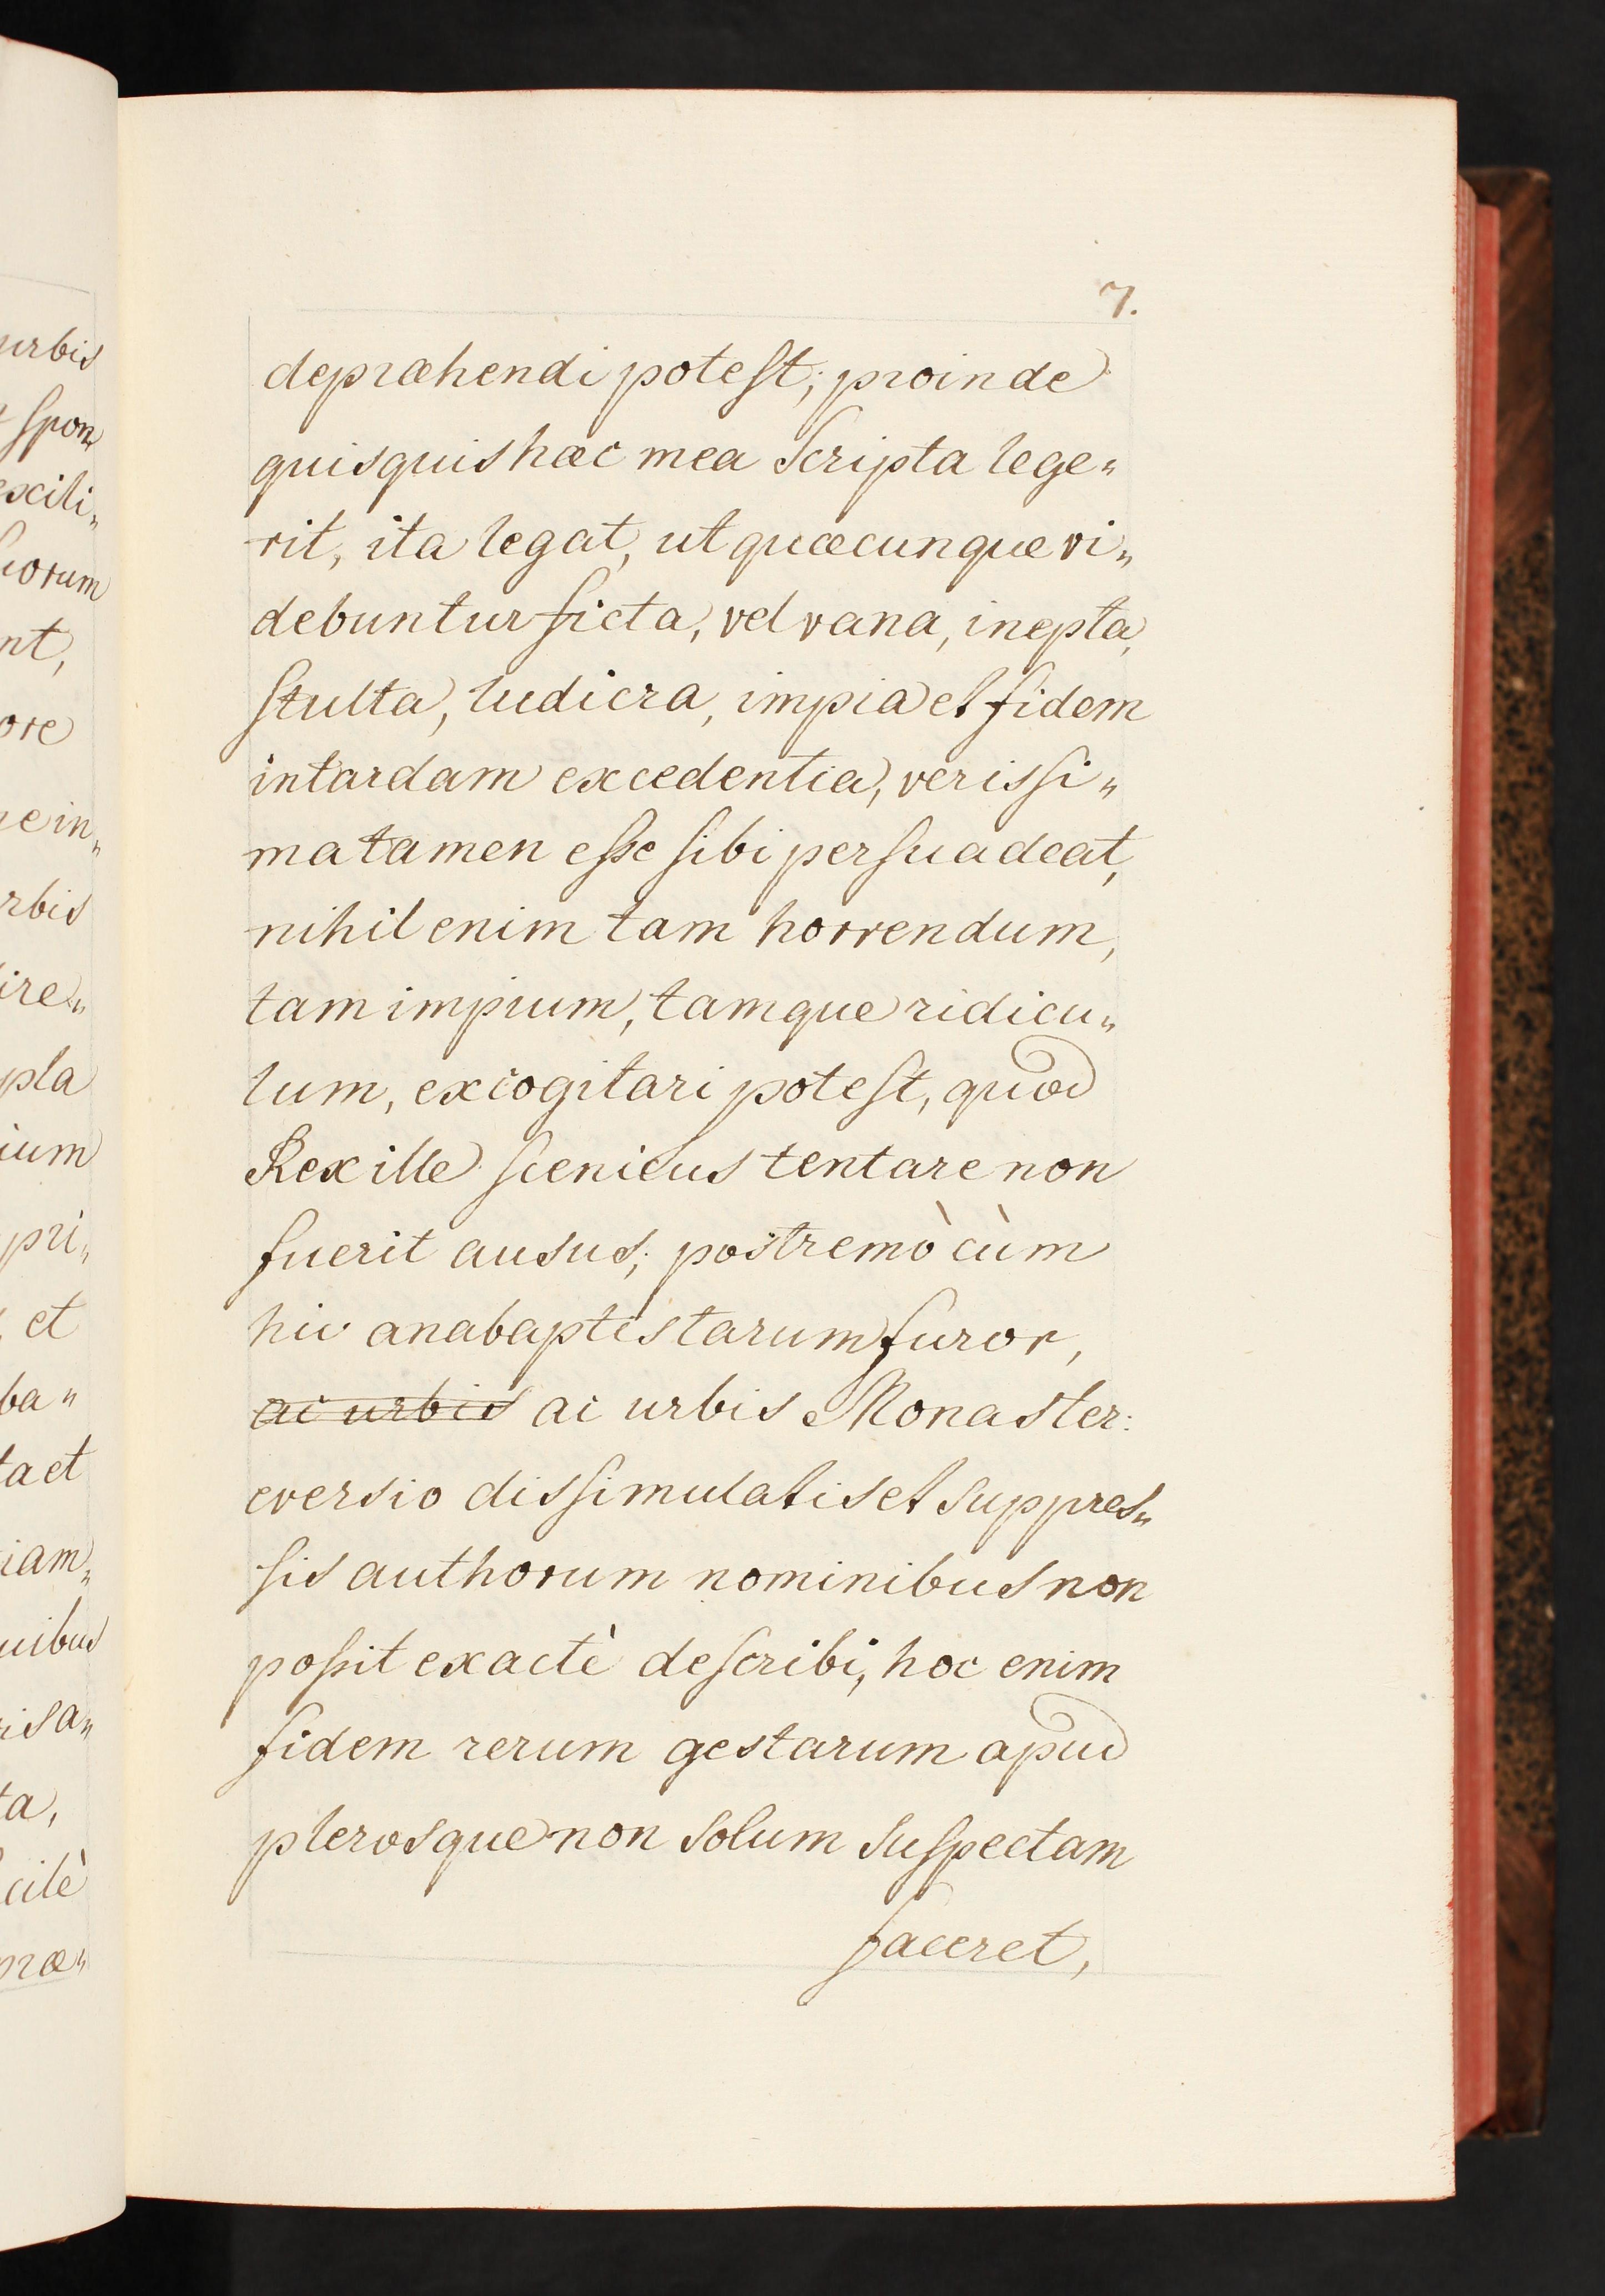 7.
depræhendi potest; proinde
quisquis hæc mea Scripta lege„
rit, ita legat, ut quæcunque vi„
debuntur ficta, vel vana, inepta,
stulta, ludicra, impia et fidem
intardam excedentia, verissi„
ma tamen esse sibi persuadeat,
nihil enim tam horrendum,
tam impium, tamque ridicu„
lum, excogitari potest, quod
Rex ille scenicus tentare non
fuerit ausus; postremò cùm
hic anabaptistarum furor,
ac urbis ac urbis Monaster:
eversio dissimulatis et suppres„
sis authorum nominibus non
possit exactè describi, hoc enim
fidem rerum gestarum apud
plerosque non solum suspectam
faceret,